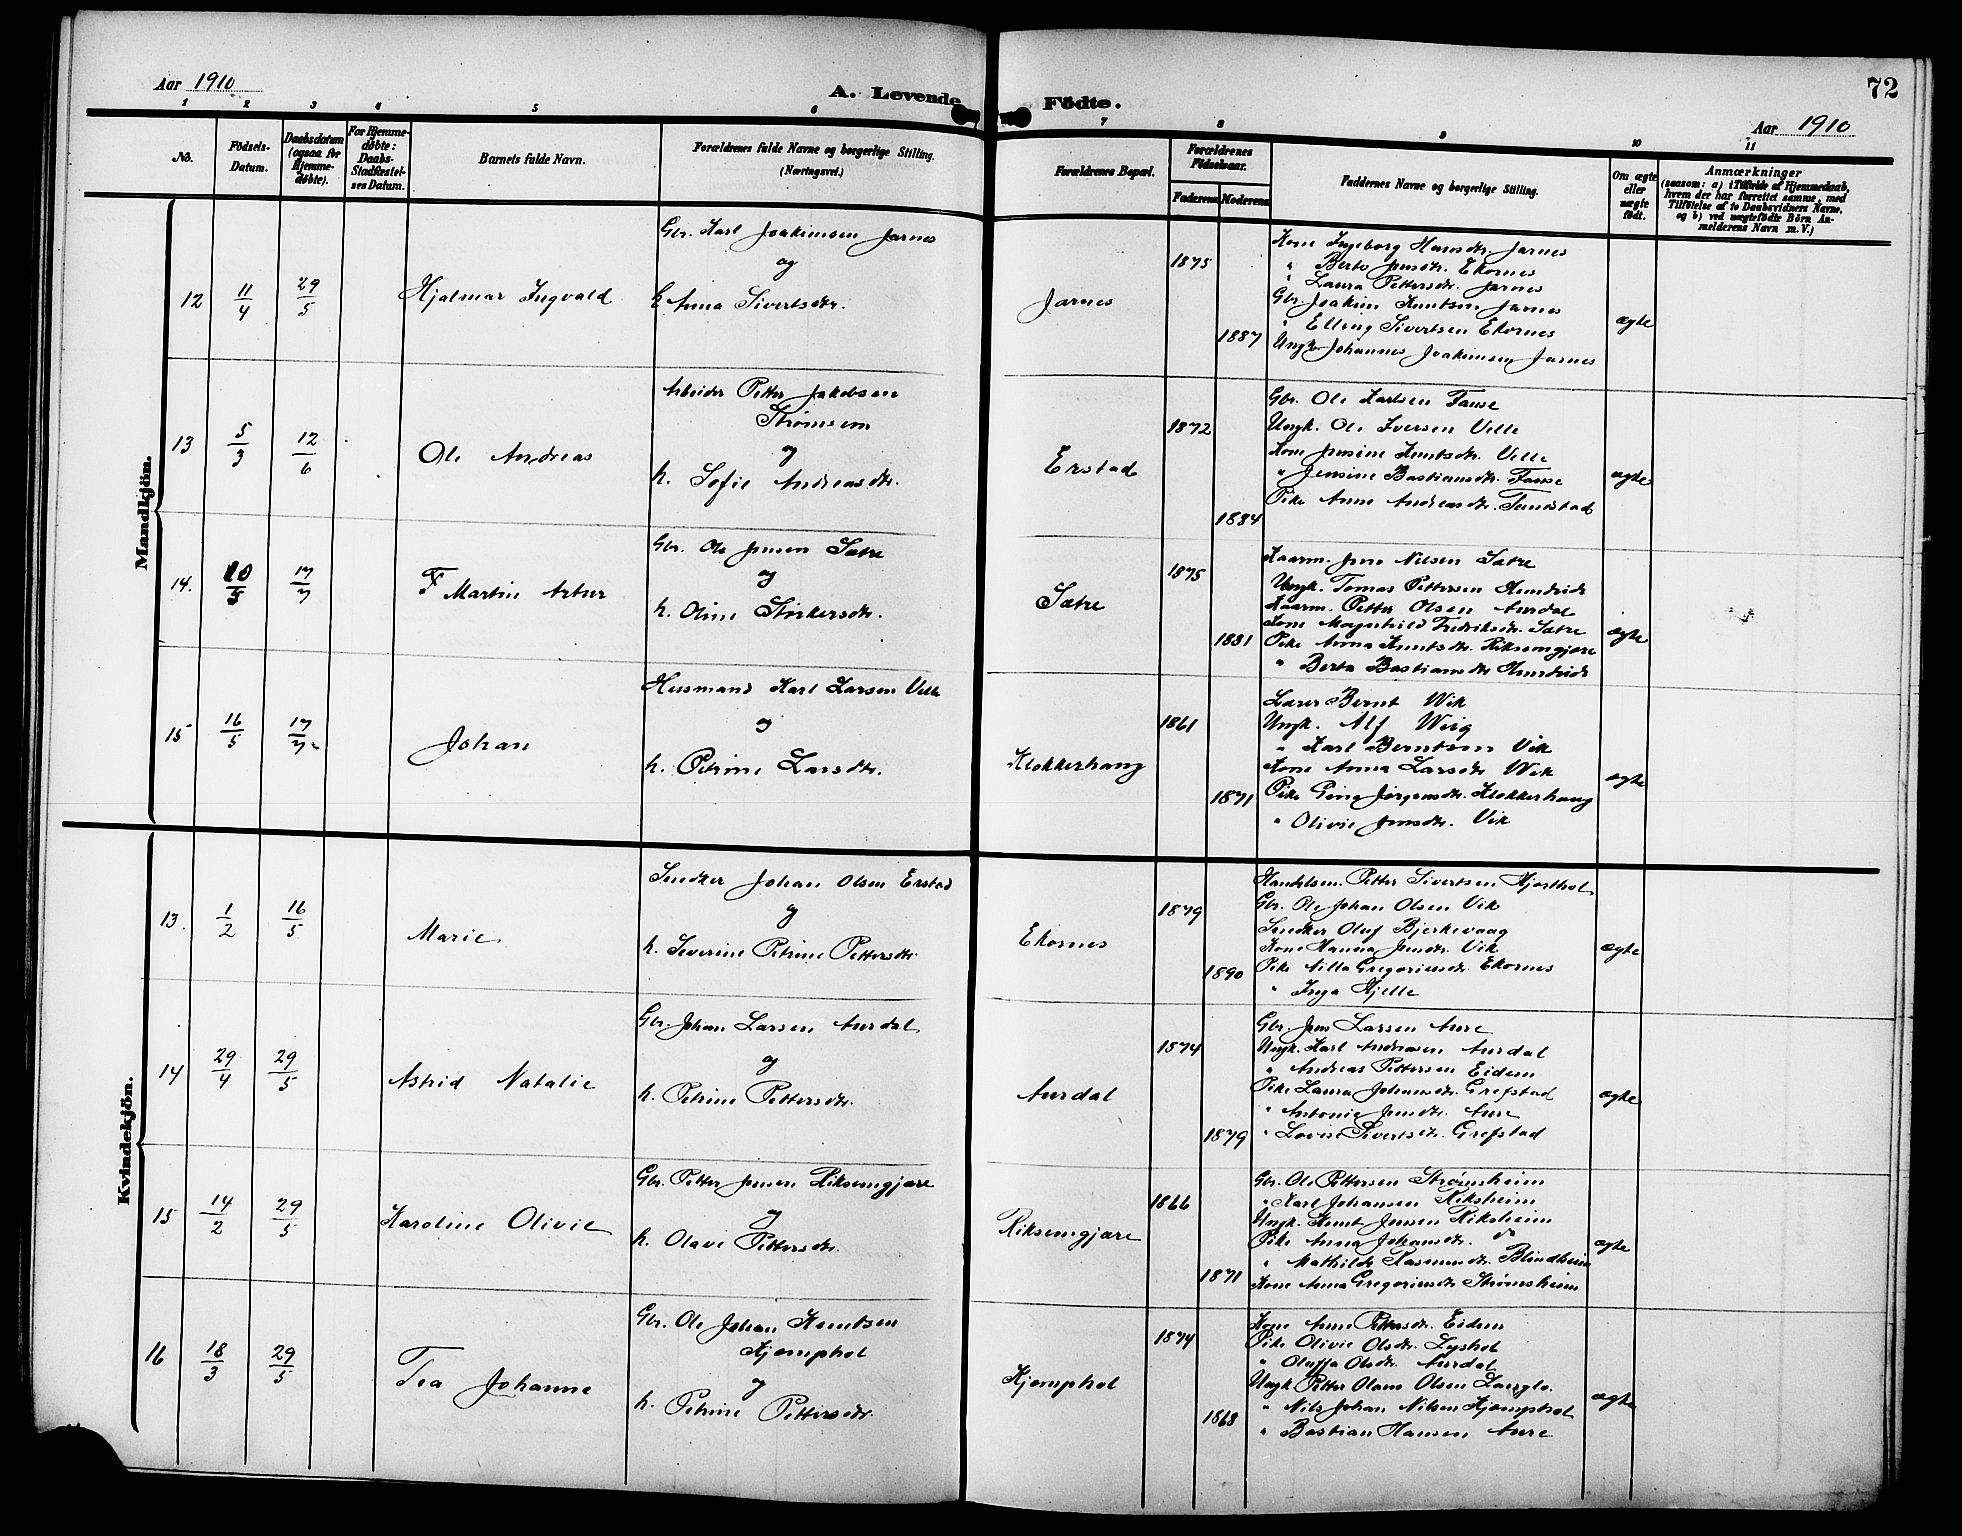 Aar 1910
A. Levende Fødte.
72
Aar 1910
1 2 3 4 5 6 7 8 9 10 11
No.
Födsels-Datum.
Daabsdatum (ogsaa for Hjemme-döbte).
For Hjemme-döbte: Daabs-Stadfæstel-ses Datum.
Barnets fulde Navn.
Forældrenes fulde Navne og borgerlige Stilling. (Næringsvei.)
Forældrenes Bopæl.
Forældrenes Födselsaar.
Faderens Moderens
Faddernes Navne og borgerlige Stilling.
Om ægte eller uægte födt.
Anmærkninger
(saasom: a) i Tilfælde af Hjemmedaab, hvem der har forrettet samme, med Tilföielse af to Daabsvidners Navne, og b) ved uægtefödte Börn Anmelderens Navn m. V.)
Mandkjön.
12 11/4 29/5 Hjalmar Ingvald
Gbr. Karl Joakimsen Jarnes
og
h. Anna Sivertsdtr.
Jarnes
1875
1887
Kone Ingeborg Hansdtr. Jarnes
" Berte Jensdtr. Ekornes
" Laura Pettersdtr. Jarnes
Gbr. Joakim Knutsen Jarnes
" Elling Sivertsen Ekornes
Ungk. Johannes Joakimsen Jarnes
ægte
13 5/3 12/6 Ole Andreas
Arbeider Petter Jakobsen
Strømsem
og
h. Sofie Andreasdtr.
Erstad
1872
1884
Gbr. Ole Karlsen Fause
Ungk. Ole Iversen Velle
Kone Jensine Knutsdtr. Velle
" Jensine Bastiansdtr. Fause
Pike Anne Andreasdtr. Tennestad
ægte
14. 10/5 17/7 F Martin Artur
Gbr. Ole Jensen Sætre
og
h. Oline Størkersdtr.
Sætre
1875
1881
Kaarm. Jens Nilsen Sætre
Ungk. Tomas Pettersen
Kaarm. Petter Olsen Aurdal
Kone Magnhild Fredriksdtr. Sætre
Pike Anna Knutsdtr. Riksemgjære
" Berta Bastiansdtr.
ægte
15 16/5 17/7 Johan
Husmand Karl Larsen Velle
og
h. Petrine Larsdtr.
Klokkerhaug
1861
1871
Lærer Bernt Wik
Ungk. Alf Weig
" Karl Berntsen Vik
Kone Anna Larsdtr. Wik
Pike Gina Jørgensdtr. Klokkerhaug
" Olivie Jensdtr. Vik
ægte
Kvindekjön.
13. 1/2 16/5 Marie
Snedker Johan Olsen Erstad
og
h. Severine Petrine Pettersdtr.
Ekornes
1879
1890
Handelsm. Petter Sivertsen Hjorthol
Gbr. Ole Johan Olsen Vik
Snedker Oluf Bjerkevaag
Kone Hanna Jensdtr. Vik
Pike Nilla Gregoriusdtr. Ekornes
" Inga Hjelle
ægte
14 29/4 29/5 Astrid Natalie
Gbr. Johan Larsen Aurdal
og
h. Petrine Pettersdtr.
Aurdal
1874
1879
Gbr. Jens Larsen Aure
Ungk. Karl Andreasen Aurdal
" Andreas Pettersen Eidem
Pike Laura Johansdtr. Grefstad
" Antonie Jensdtr. Aure
" Lovise Sivertsdtr. Grefstad
ægte
15 14/2 29/5 Karoline Olivie
Gbr. Petter Jensen Riksemgjære
og
h. Olave Pettersdtr.
Riksemgjære
1866
1871
Gbr. Ole Pettersen Strømsheim
" Karl Johansen Riksheim
Ungk. Knut Jensen Riksheim
Pike Anna Johansdtr. do
" Mathilde Rasmusdtr. Blindheim
Kone Anna Gregoriusdtr. Strømsheim
ægte
16 18/3 29/5 Tea Johanne
Gbr. Ole Johan Knutsen
Kjemphol
og
h. Petrine Pettersdtr.
Kjemphol
1874
1868
Kone Anne Pettersdtr. Eidem
Pike Olivie Olsdtr. Lyshol
" Oluffa Olsdtr. Aurdal
Ungk. Petter Olaus Olsen Langlo.
" Nils Johan Nilsen Kjemphol
" Bastian Hansen Aure
ægte